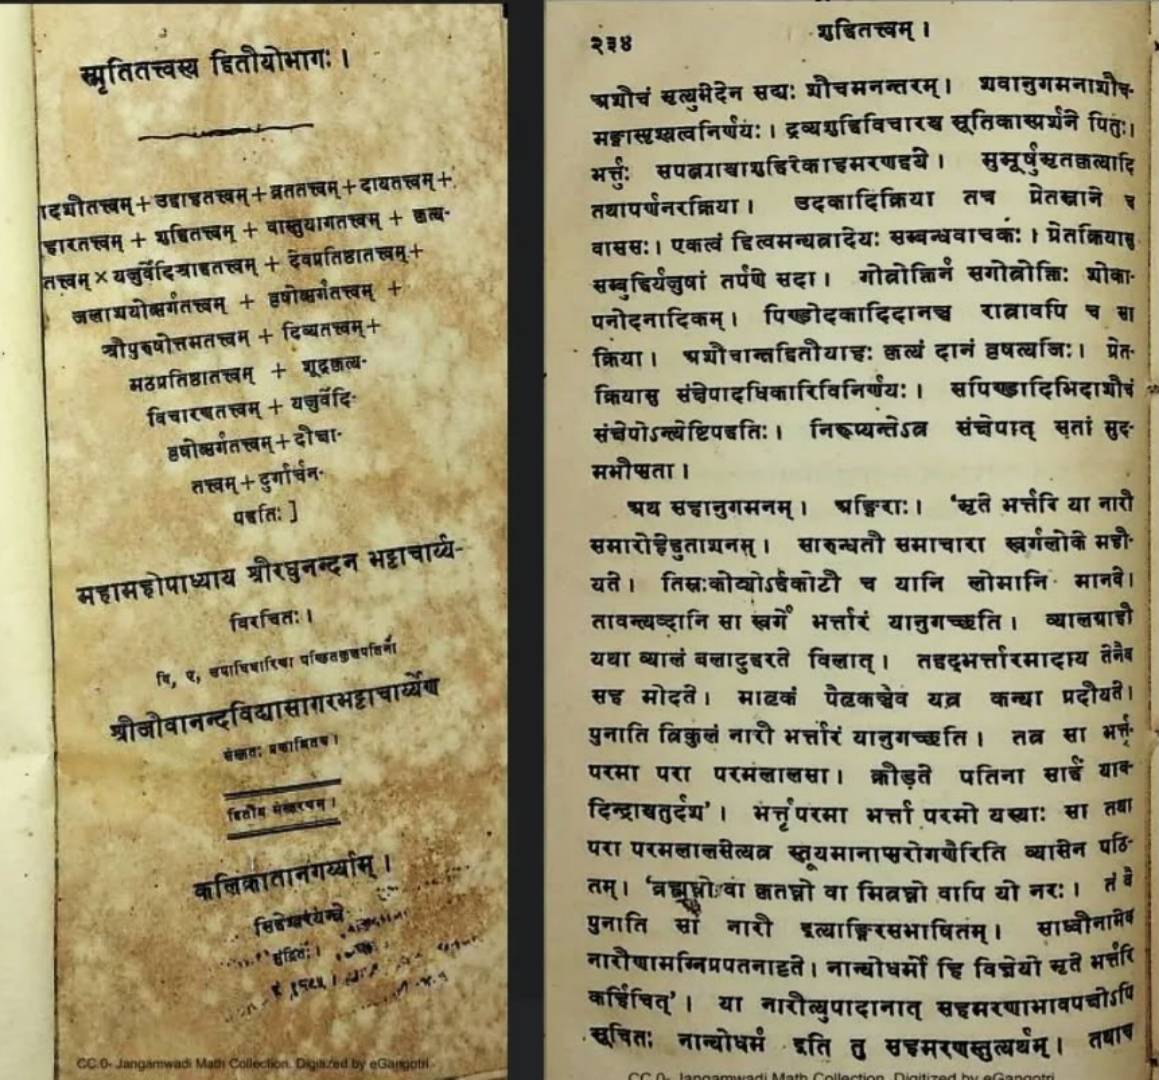 स्मृतितत्त्वस्य द्वितीयोभागः ।
दशौतत्त्वम् + उद्वाहतत्त्वम् + व्रततत्त्वम् + दायतत्त्वम् +
हारतत्त्वम् + शुद्धितत्त्वम् + वास्तुयागतत्त्वम् + कृत्य-
तत्त्वम् × यजुर्वेदिश्राद्धतत्त्वम् + देवप्रतिष्ठातत्त्वम् +
जलाशयोत्सर्गतत्त्वम् + वृषोत्सर्गतत्त्वम् +
श्रीपुरुषोत्तमतत्त्वम् + दिव्यतत्त्वम् +
मठप्रतिष्ठातत्त्वम् + शूद्रकृत्य-
विचारणतत्त्वम् + यजुर्वेदि-
वृषोत्सर्गतत्त्वम् + दीक्षा-
तत्त्वम् + दुर्गार्चन-
पद्धतिः ]
महामहोपाध्याय श्रीरघुनन्दन भट्टाचार्य्य-
विरचितः ।
वि, ए, उपाधिधारिणा पण्डितकुलपतिना
श्रीजीवानन्दविद्यासागरभट्टाचार्य्येण
संस्कृतः प्रकाशितश्च ।
द्वितीय संस्करणम् ।
कलिकातानगर्य्याम् ।
सिद्धेश्वरयन्त्रे
मुद्रितः ।
CC 0- Jangamwadi Math Collection. Digitized by eGangotri
२३४ शुद्धितत्त्वम् ।
अशौचं मृत्युभेदेन सद्यः शौचमनन्तरम् । शवानुगमनाशौच-
मङ्गास्पृश्यत्वनिर्णयः । द्रव्यशुद्धिविचारश्च सूतिकास्पर्शने पितुः ।
भर्त्तुः सपत्न्याश्चाशुद्धिरेकाहमरणद्वये । मुमूर्षुमृतकृत्यादि
तथापर्णनरक्रिया । उदकादिक्रिया तत्र प्रेतस्नाने च
वाससः । एकत्वं द्वित्वमन्यत्रादेयः सम्बन्धवाचकः । प्रेतक्रियासु
सम्बुद्धिर्यजुषां तर्पणे सदा । गोत्रोक्तिर्न सगोत्रोक्तिः शोका-
पनोदनादिकम् । पिण्डोदकादिदानञ्च रात्रावपि च सा
क्रिया । अशौचान्तद्वितीयाहः कृत्यं दानं वृषत्यजिः । प्रेत-
क्रियासु संक्षेपादधिकारिविनिर्णयः । सपिण्डादिभिदाशौचं
संक्षेपोऽन्त्येष्टिपद्धतिः । निरूप्यन्तेऽत्र संक्षेपात् सतां मुद-
मभीप्सता ।
अथ सहानुगमनम् । अङ्गिराः । 'मृते भर्त्तरि या नारी
समारोहेद्धुताशनम् । सारुन्धती समाचारा स्वर्गलोके मही-
यते । तिस्रःकोट्योऽर्द्धकोटी च यानि लोमानि मानवे ।
तावन्त्यब्दानि सा स्वर्गे भर्त्तारं यानुगच्छति । व्यालग्राही
यथा व्यालं बलादुद्धरते विलात् । तद्वद्भर्त्तारमादाय तेनैव
सह मोदते । मातृकं पैतृकञ्चैव यत्र कन्या प्रदीयते ।
पुनाति त्रिकुलं नारी भर्त्तारं यानुगच्छति । तत्र सा भर्त्तृ-
परमा परा परमलालसा । क्रीड़ते पतिना सार्द्धं याव-
दिन्द्राश्चतुर्दश' । भर्त्तृपरमा भर्त्ता परमो यस्याः सा तथा
परा परमलालसेत्यत्र स्तूयमानाप्सरोगणैरिति व्यासेन पठि-
तम् । 'ब्रह्मघ्नो वा कृतघ्नो वा मित्रघ्नो वापि यो नरः । तं वै
पुनाति सा नारी इत्याङ्गिरसभाषितम् । साध्वीनामेव
नारीणामग्निप्रपतनादृते । नान्योधर्मो हि विज्ञेयो मृते भर्त्तरि
कर्हिचित्' । या नारीत्युपादानात् सहमरणाभावपक्षोऽपि
सूचितः नान्योधर्म इति तु सहमरणस्तुत्यर्थम् । तथाच
CC 0- Jangamwadi Math Collection. Digitized by eGangotri